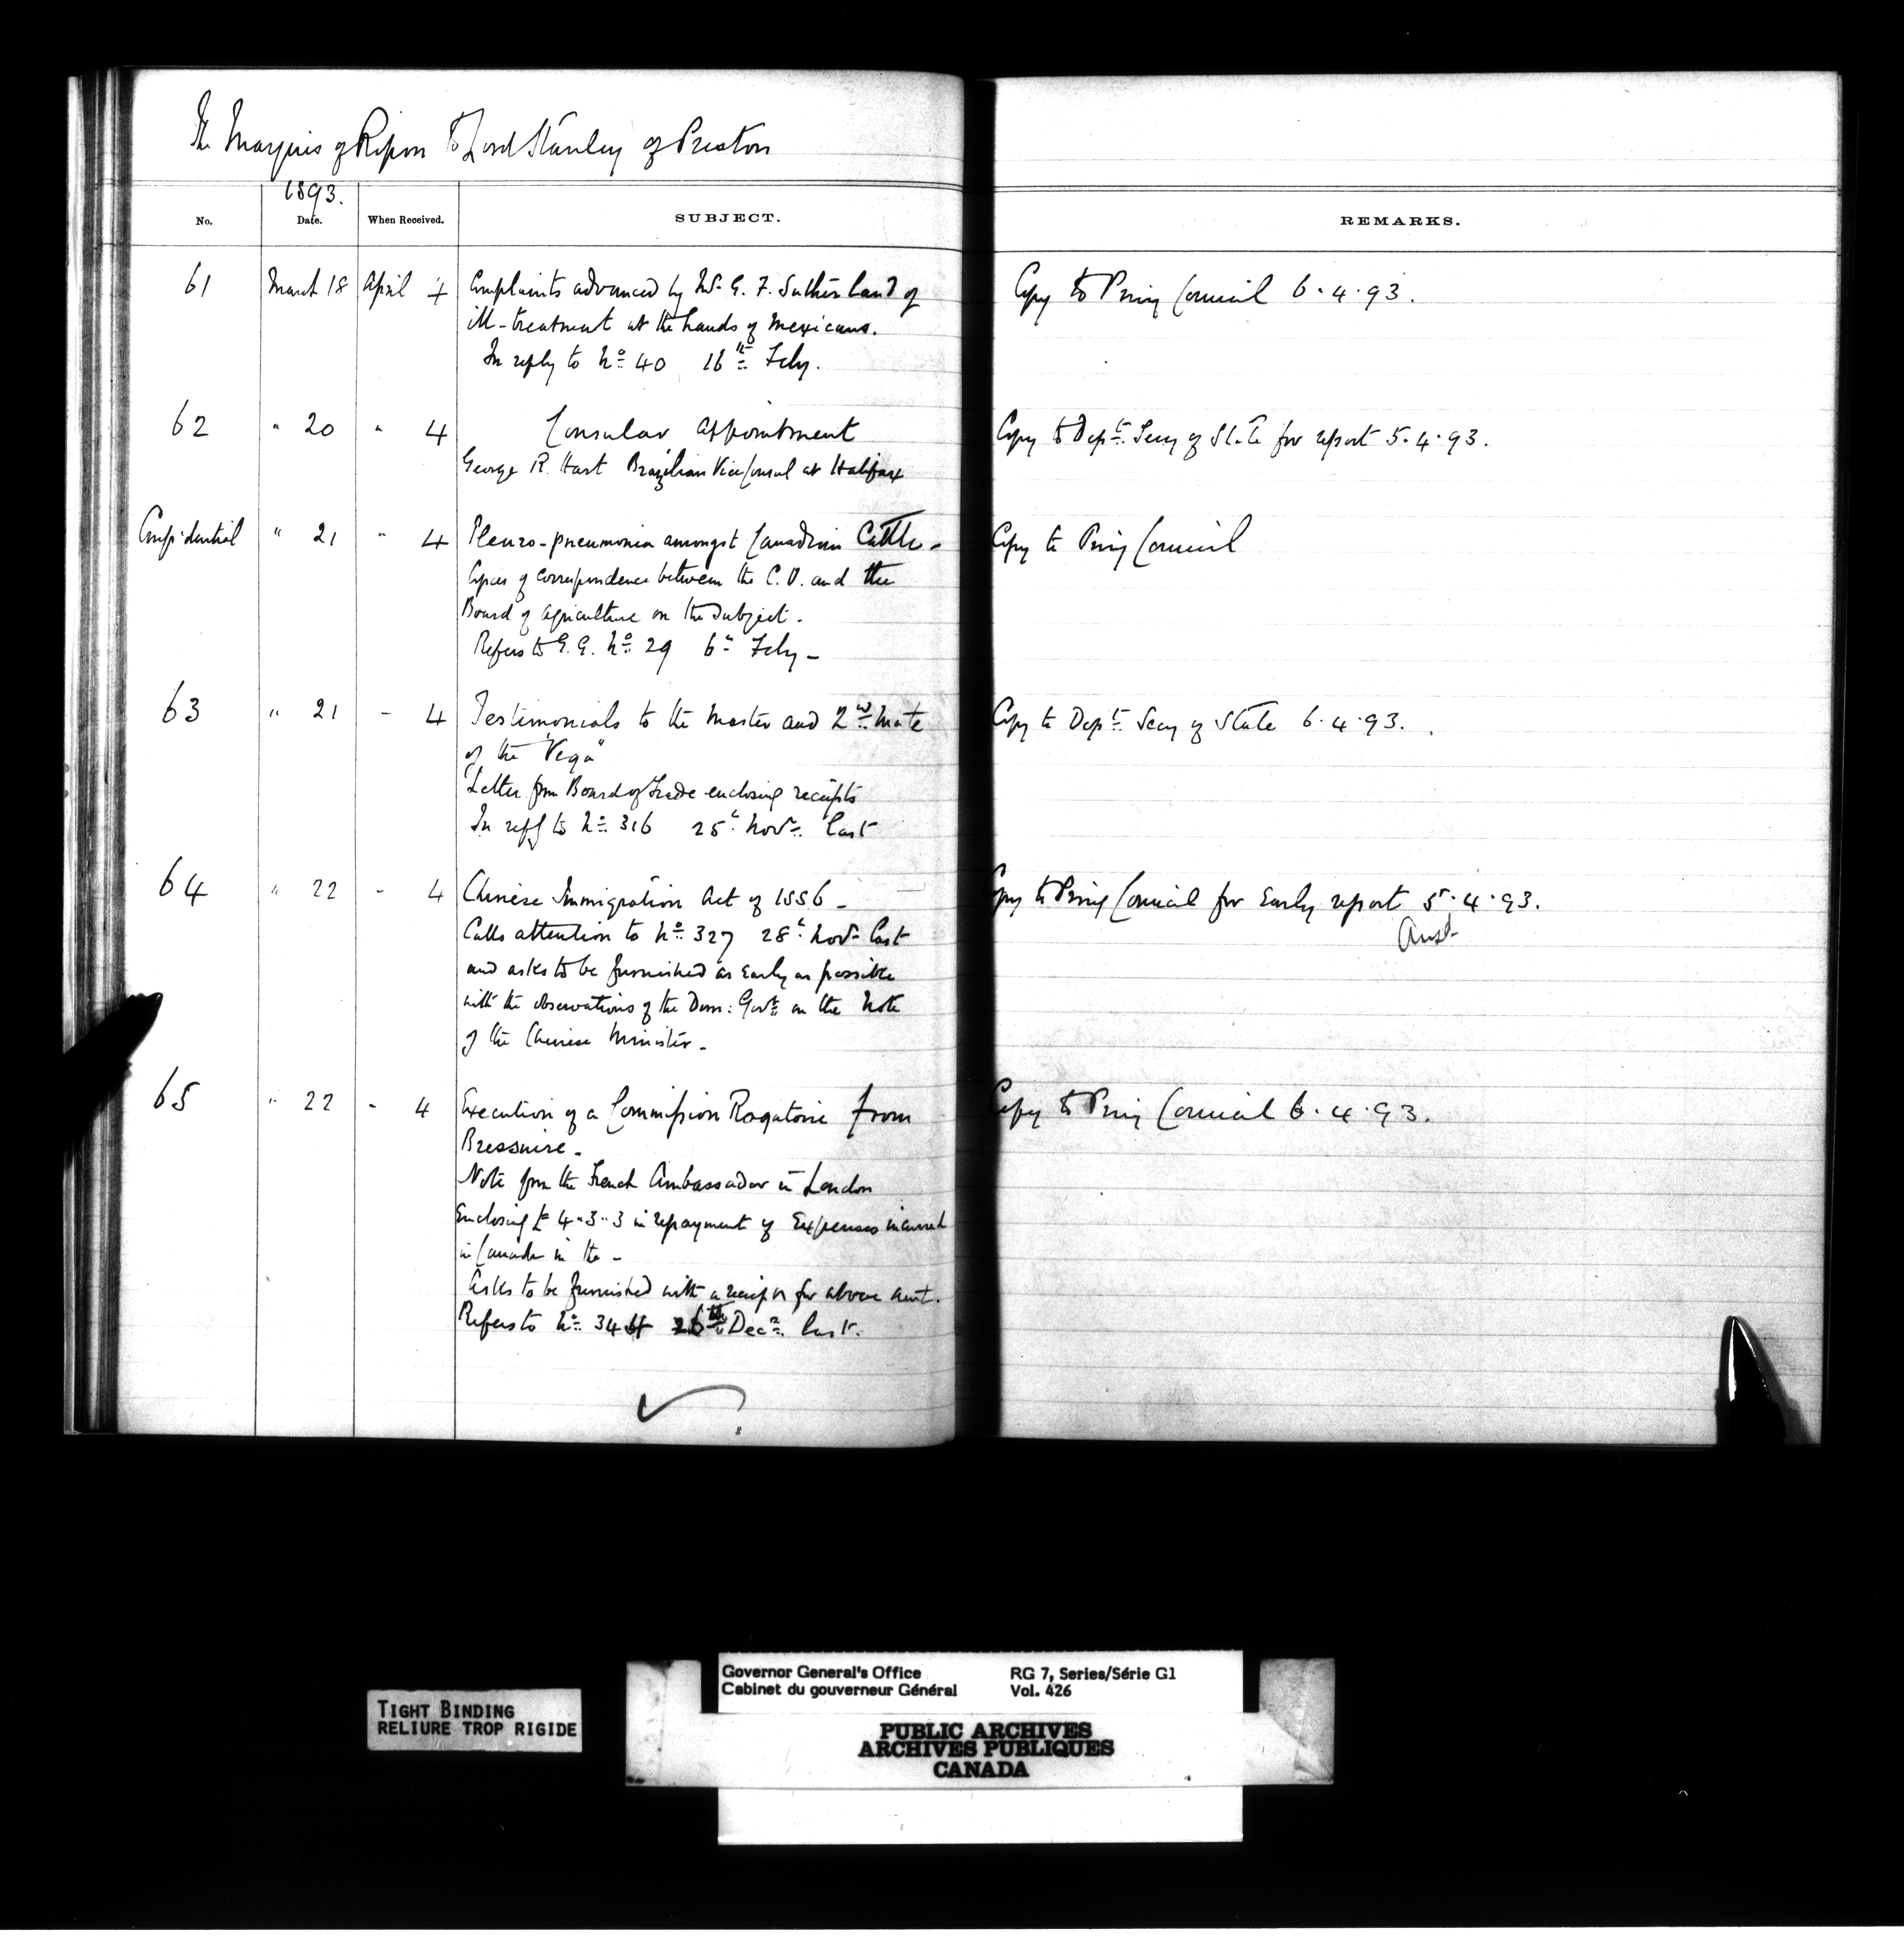 The Marquis of Ripon To Lord Stanley of Preston
1893.
No. Date. When Received. SUBJECT. REMARKS.
61 March 18 April 4 Complaints advanced by Mr. G. F. Sutherland of Copy to Privy Council 6.4.93.
ill-treatment at the hands of Mexicans.
In reply to No. 40 16th Feby.
62 " 20 " 4 Consular Appointment Copy to Dept. Secy of State for report 5.4.93.
George R. Hart Brazilian Vice Consul at Halifax
Confidential " 21 " 4 Pleuro-pneumonia amongst Canadian Cattle- Copy to Privy Council
Copies of correspondence between the C.O. and the
Board of Agriculture on the subject.
Refers to G.G. No. 29 6th Feby-
63 " 21 - 4 Testimonials to the Master and 2nd Mate Copy to Dept. Secy of State 6.4.93.
of the "Vega"
Letter from Board of Trade enclosing receipts
In reply to No. 316 25th Novr. last
64 " 22 - 4 Chinese Immigration Act of 1886- Copy to Privy Council for Early report 5.4.93.
Ansd
Calls attention to No. 327 28th Novr last
and asks to be furnished as early as possible
with the observations of the Dom: Govt. on the Note
of the Chinese Minister-
65 " 22 - 4 Execution of a Commission Rogatoire from Copy to Privy Council 6.4.93.
Bressuire-
Note from the French Ambassador in London
Enclosing £4-3-3 in repayment of Expenses incurred
in Canada in the-
Asks to be furnished with a receipt for above amt.
Refers to No. 344 26th Decr. last.
TIGHT BINDING
RELIURE TROP RIGIDE
Governor General's Office RG 7, Series/Série G1
Cabinet du gouverneur Général Vol. 426
PUBLIC ARCHIVES
ARCHIVES PUBLIQUES
CANADA